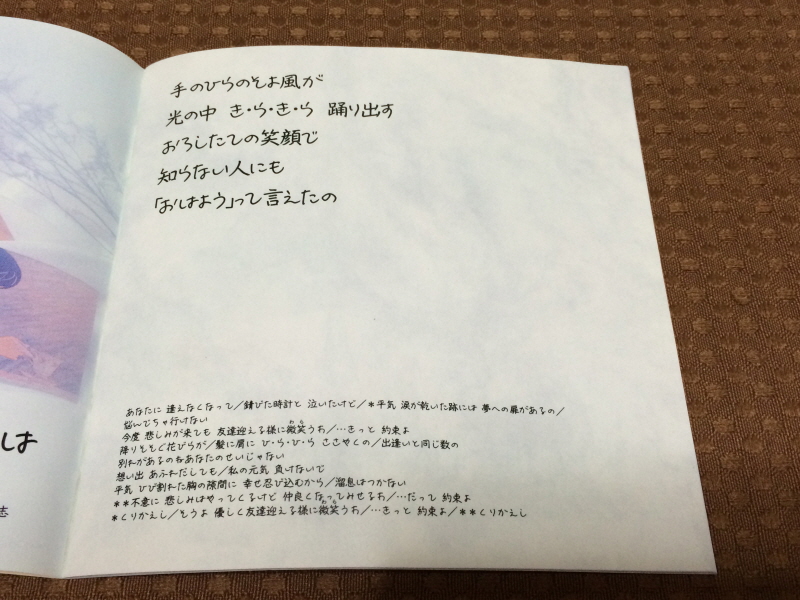 手のひらのそよ風が
光の中 き・ら・き・ら 踊り出す
おろしたての笑顔で
知らない人にも
「おはよう」って言えたの
あなたに 逢えなくなって／錆びた時計と 泣いたけど／＊平気 涙が乾いた跡には 夢への扉があるの／
悩んでちゃ行けない
今度 悲しみが来ても 友達迎える様に微笑うわ／…きっと 約束よ
わら
降りそそぐ花びらが／髪に肩に ひ・ら・ひ・ら ささやくの／出逢いと同じ数の
別れがあるのもあなたのせいじゃない
想い出 あふれだしても／私の元気 負けないで
平気 ひび割れた胸の隙間に 幸せ忍び込むから／溜息はつかない
＊＊不意に 悲しみはやってくるけど 仲良くなってみせるわ／…だって 約束よ
＊くりかえし／そうよ 優しく友達迎える様に微笑うわ／…きっと 約束よ／＊＊くりかえし
わら
しは
志